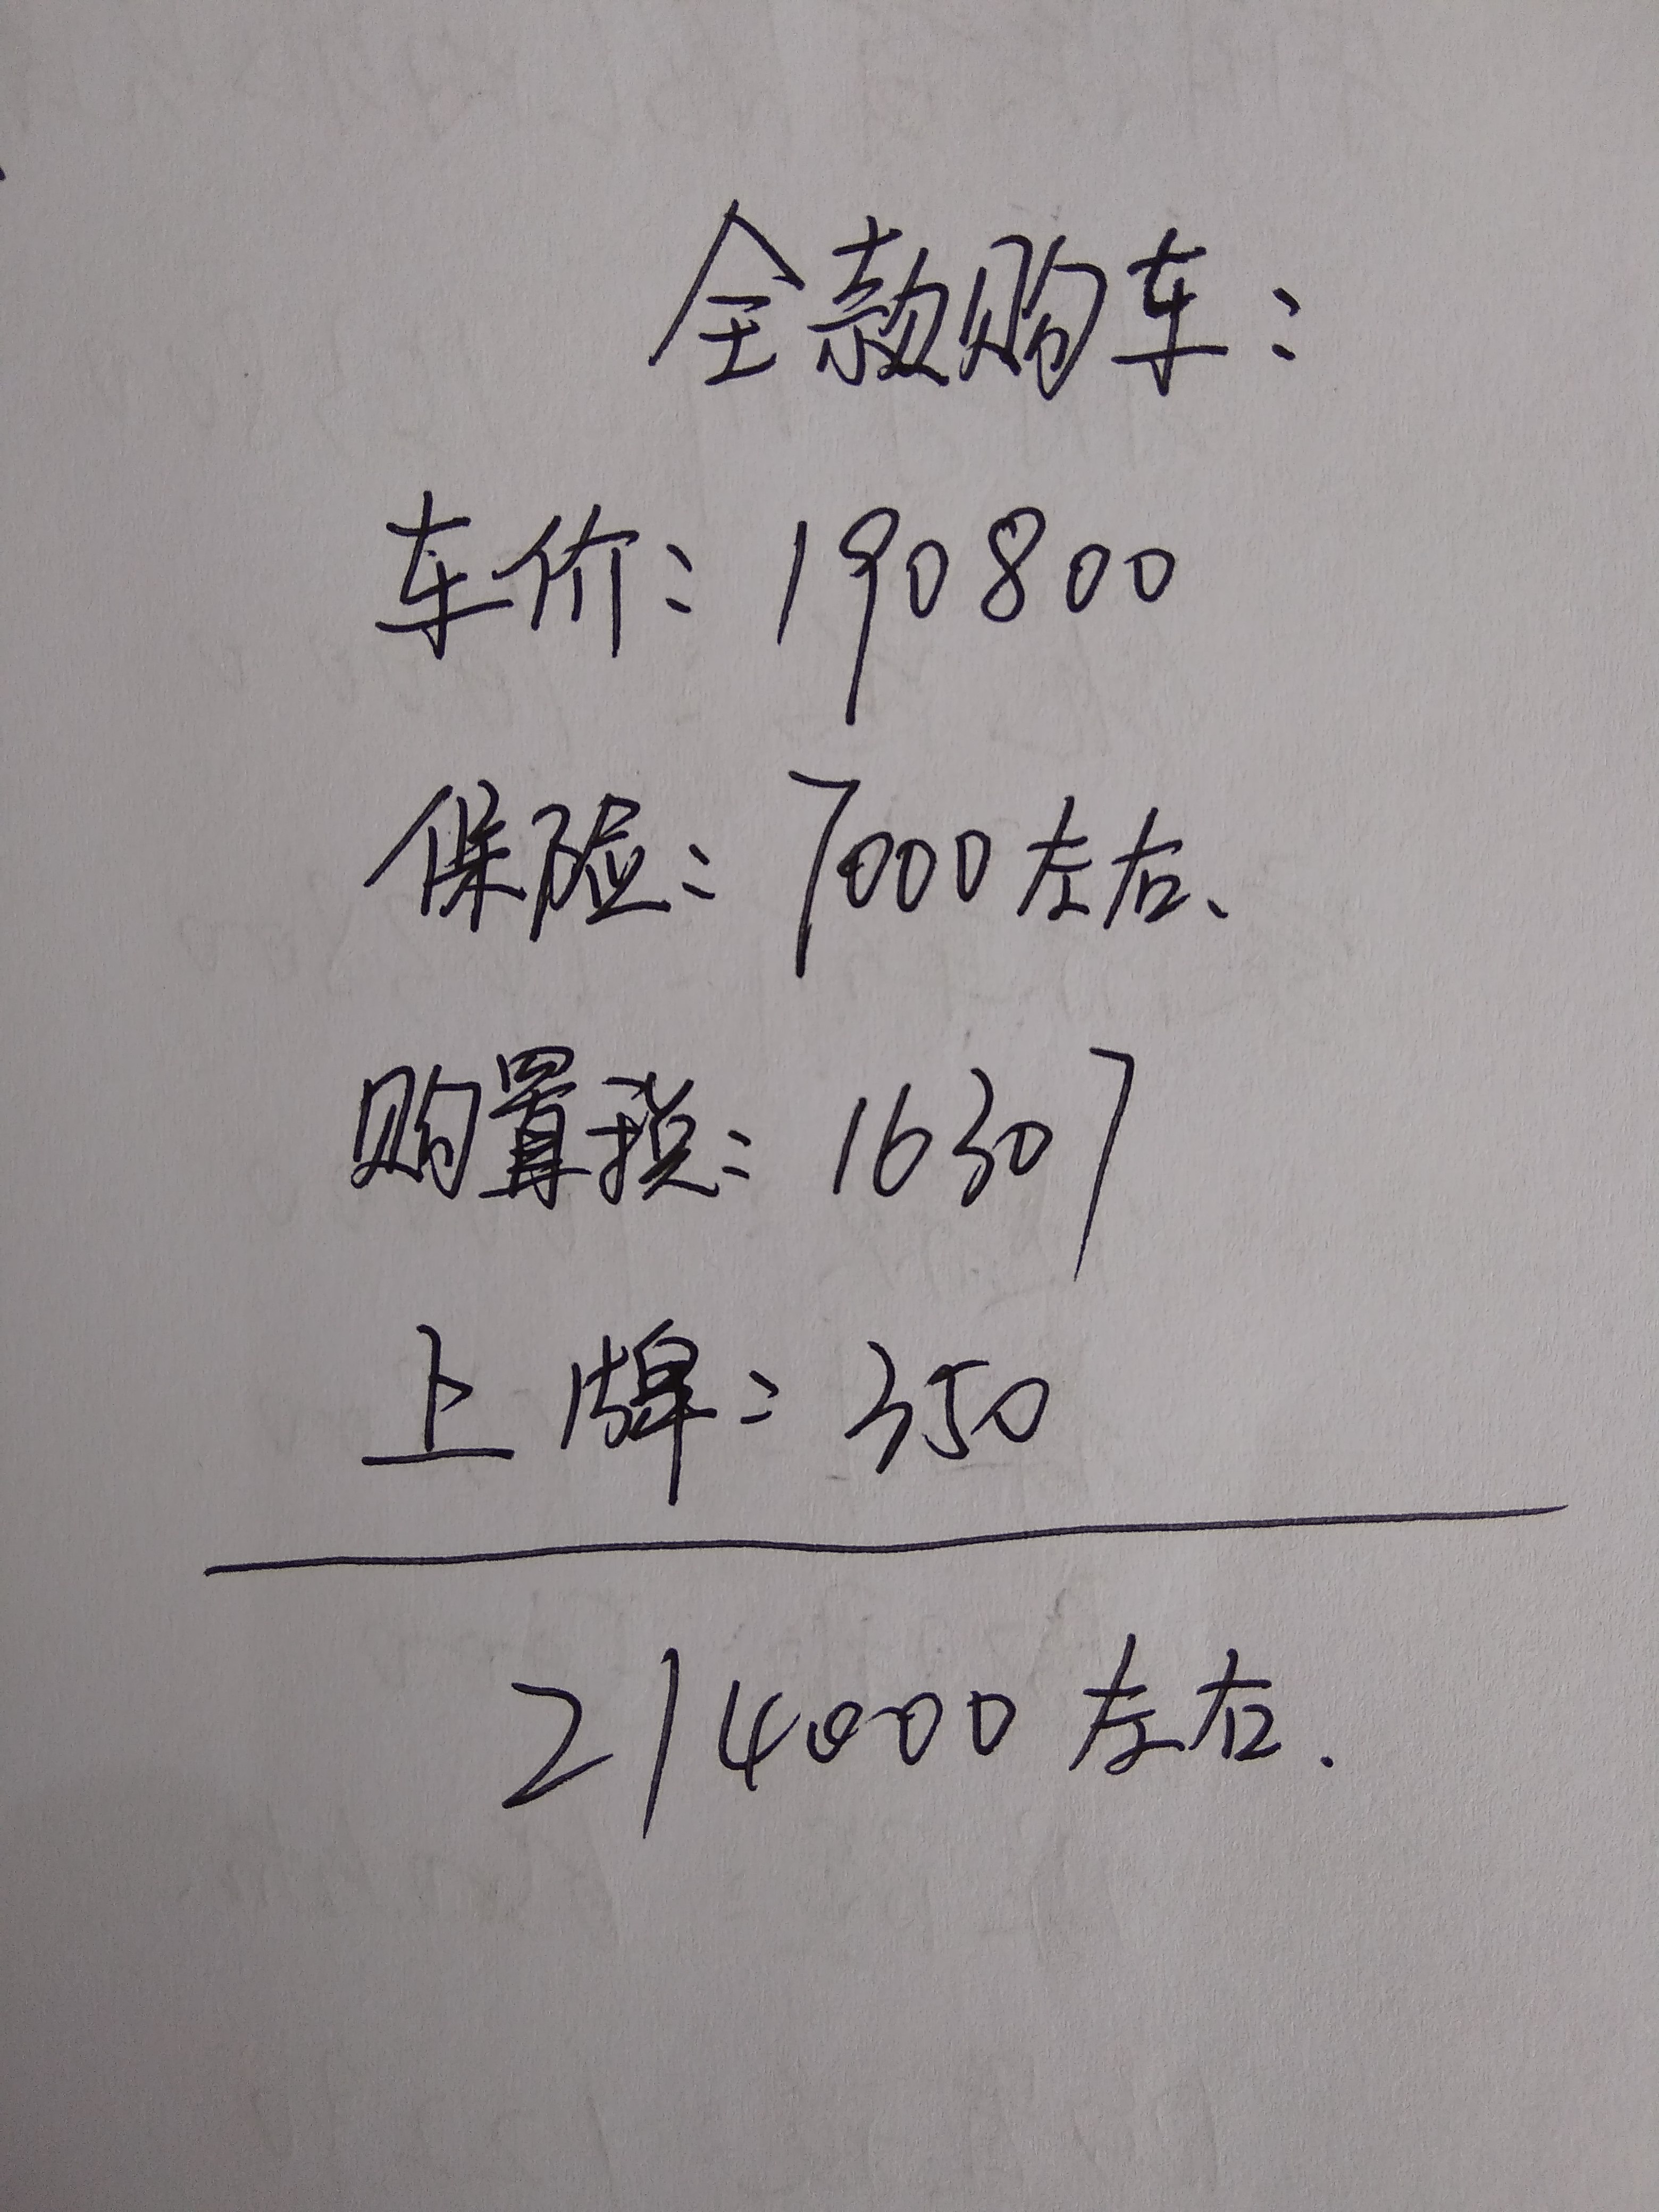 全款购车:
车价:190800
保险:7000左右、
购置税:16307
上牌:350
214000左右.